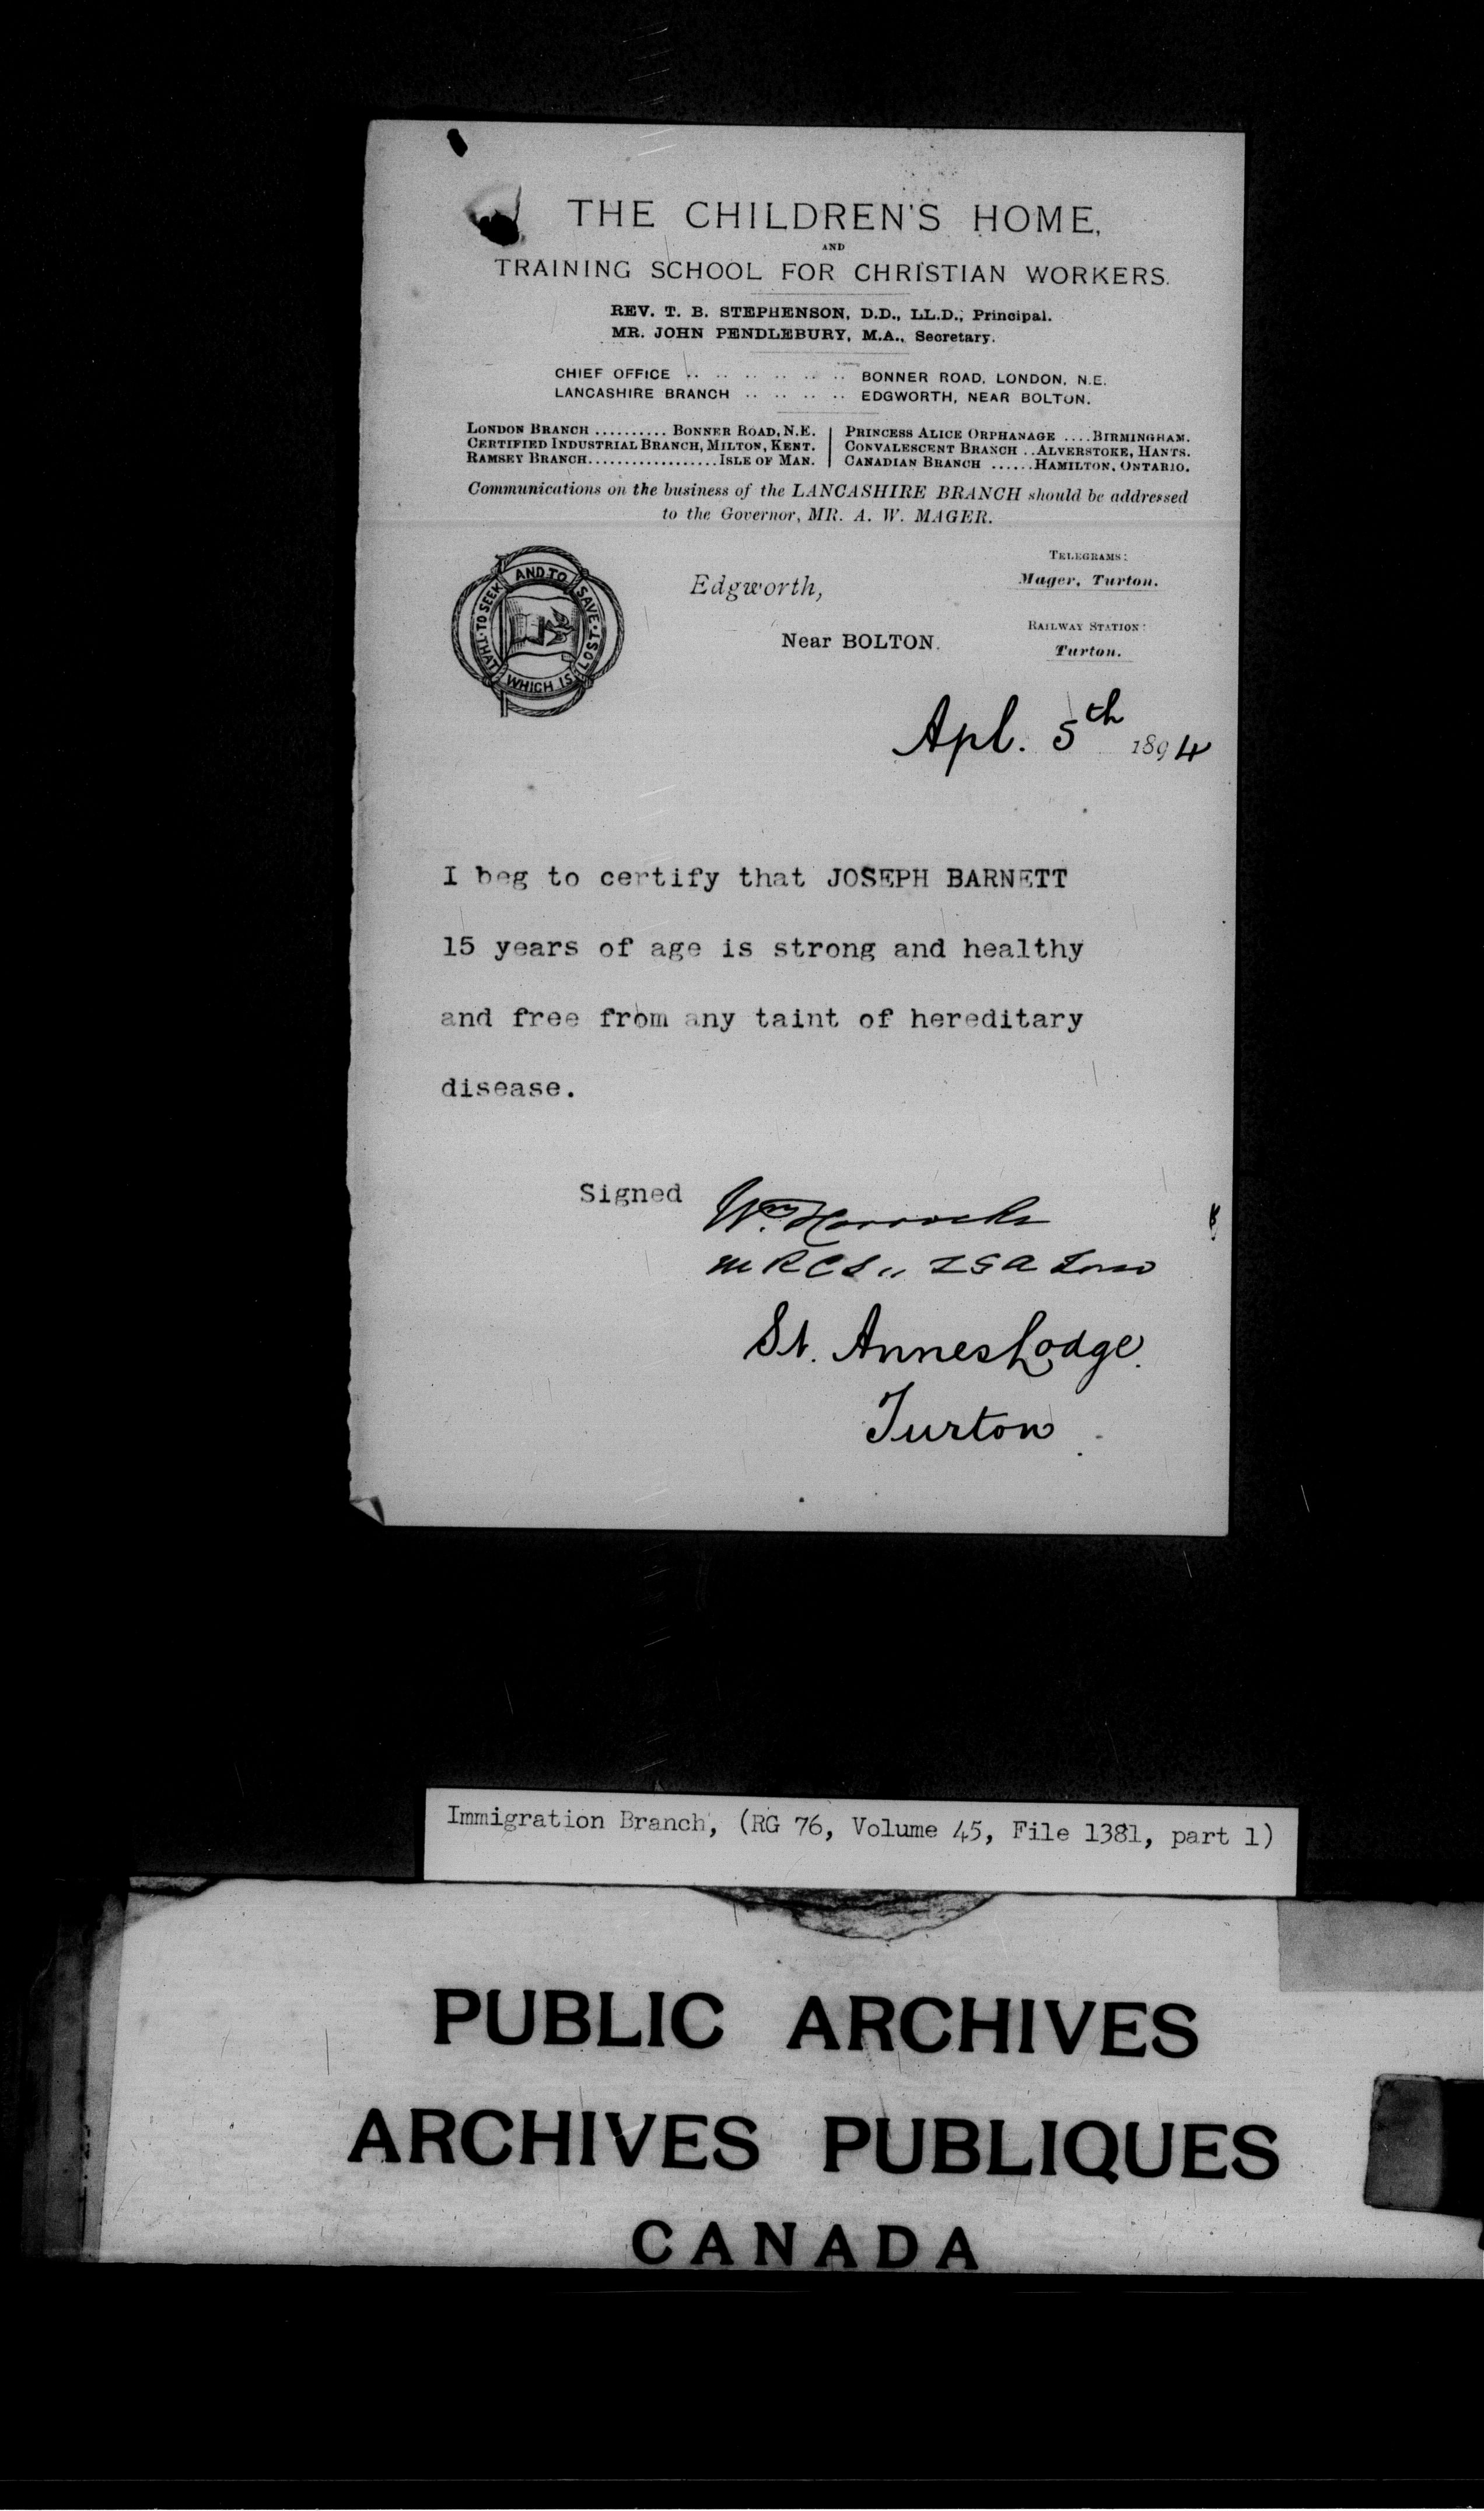 THE CHILDREN'S HOME,
AND
TRAINING SCHOOL FOR CHRISTIAN WORKERS.
REV. T. B. STEPHENSON, D.D., LL.D., Principal.
MR. JOHN PENDLEBURY, M.A., Secretary.
CHIEF OFFICE .. .. .. .. .. .. BONNER ROAD, LONDON, N.E.
LANCASHIRE BRANCH .. .. .. .. EDGWORTH, NEAR BOLTON.
LONDON BRANCH .......... BONNER ROAD, N.E.
CERTIFIED INDUSTRIAL BRANCH, MILTON, KENT.
RAMSEY BRANCH..................ISLE OF MAN.
PRINCESS ALICE ORPHANAGE ....BIRMINGHAM.
CONVALESCENT BRANCH ..ALVERSTOKE, HANTS.
CANADIAN BRANCH ......HAMILTON, ONTARIO.
Communications on the business of the LANCASHIRE BRANCH should be addressed
to the Governor, MR. A. W. MAGER.
TO SEEK AND TO SAVE THAT WHICH IS LOST
TELEGRAMS:
Mager, Turton.
Edgworth,
RAILWAY STATION:
Near BOLTON.
Turton.
Apl. 5th 1894
I beg to certify that JOSEPH BARNETT
15 years of age is strong and healthy
and free from any taint of hereditary
disease.
Signed Wm. Horrocks
MRCS,, LSA Lond
St. Annes Lodge.
Turton
Immigration Branch, (RG 76, Volume 45, File 1381, part 1)
PUBLIC ARCHIVES
ARCHIVES PUBLIQUES
CANADA